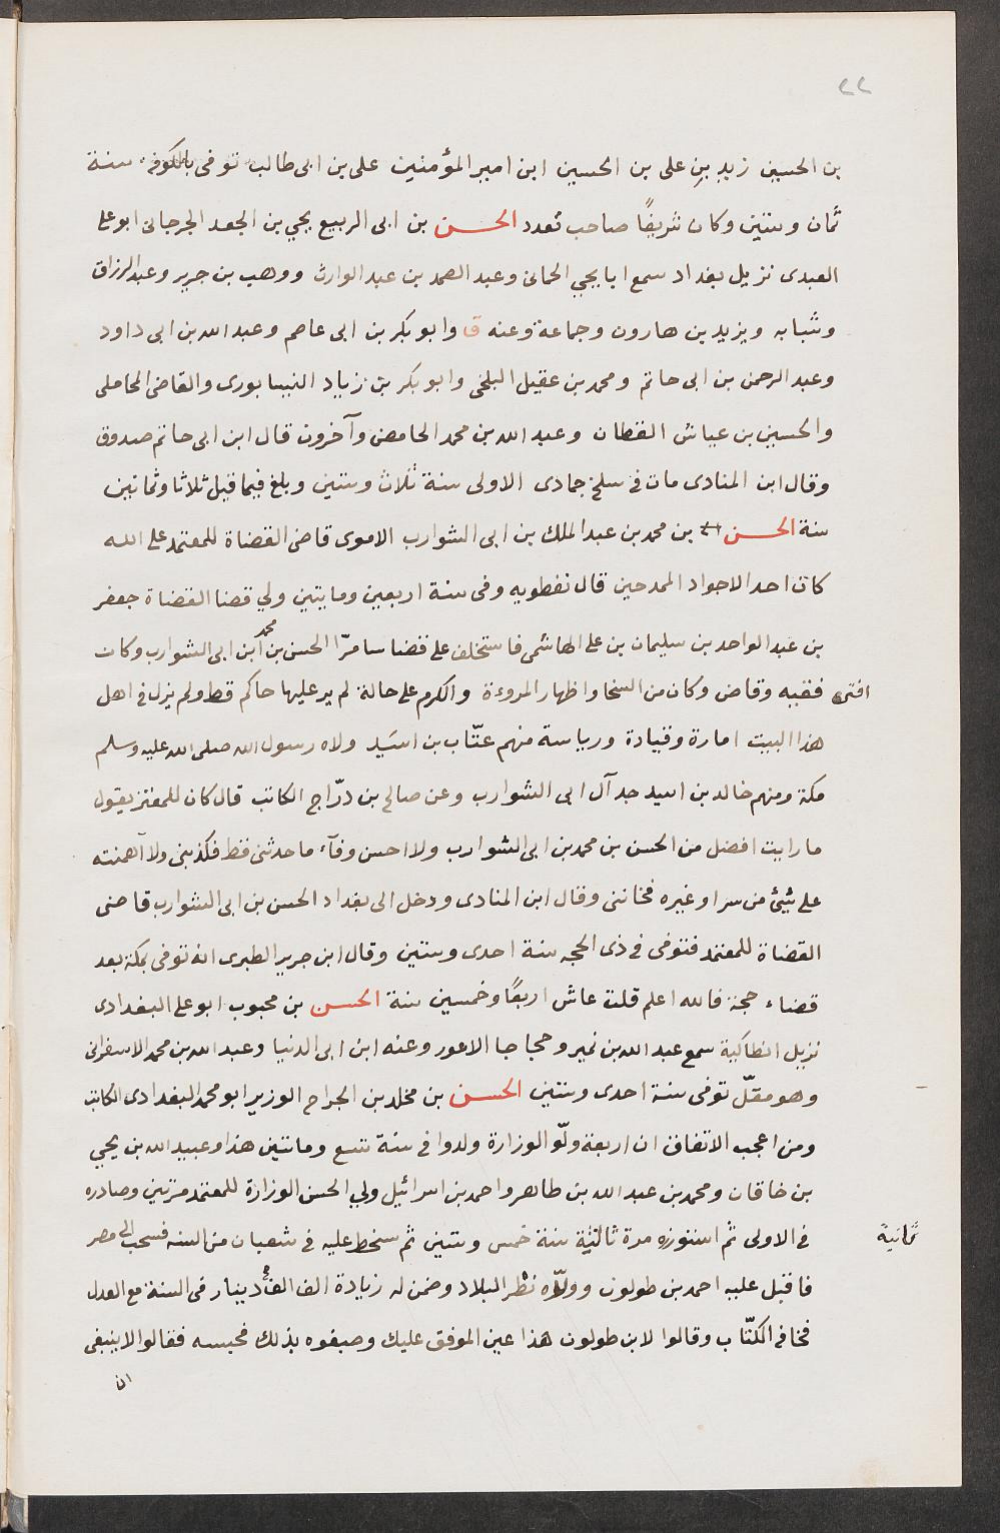 ٢٢
بن الحسين زيد بن على بن الحسين ابن امير المؤمنين على بن ابى طالب توفى بالكوفة سنة
ثمان وستين وكان شريفًا صاحب تعدد الحسن بن ابى الربيع يحيي بن الجعد الجرجانى ابو على
العبدى نزيل بغداد سمع ابا يحيي الحمانى وعبد الصمد بن عبد الوارث ووهب بن جرير وعبد الرزاق
وشبابه ويزيد بن هارون وجماعة وعنه ق وابو بكر بن ابى عاصم وعبد الله بن ابى داود
وعبد الرحمن بن ابى حاتم ومحمد بن عقيل البلخى وابو بكر بن زياد النيسابورى والقاضى المحاملى
والحسين بن عياش القطان وعبد الله بن محمد الحامض وآخرون قال ابن ابى حاتم صدوق
وقال ابن المنادى مات فى سلخ جمادى الاولى سنة ثلاث وستين وبلغ فيما قيل ثلاثا وثمانين
سنة الحسن بن محمد بن عبد الملك بن ابى الشوارب الاموى قاضى القضاة للمعتمد على الله
كان احد الاجواد الممدحين قال نفطويه وفى سنة اربعين ومايتين ولي قضا القضاة جعفر
بن عبد الواحد بن سليمان بن على الهاشمى فاستخلف على قضا سامرّا الحسن بن محمد ابن ابى الشوارب وكان
افتى فقيه وقاض وكان من السخا واظهار المروءة والكرم على حالة لم ير عليها حاكم قط ولم يزل فى اهل
هذا البيت امارة وقيادة ورياسة منهم عتّاب بن اسَيد ولاه رسول الله صلى الله عليه وسلم
مكة ومنهم خالد بن اسيد جد آل ابى الشوارب وعن صالح بن درّاج الكاتب قال كان للمعتز يقول
ما رايت افضل من الحسن بن محمد بن ابى الشوارب ولا احسن وفآء ما حدثنى قط فكذبنى ولا آئمنته
على شيئ من سر او غيره فخاننى وقال ابن المنادى ودخل الى بغداد الحسن بن ابى الشوارب قاضى
القضاة للمعتمد فتوفى فى ذى الحجه سنة احدى وستين وقال ابن جرير الطبرى انه توفى بمكة بعد
قضاء حجة فالله اعلم قلت عاش اربعًا وخمسين سنة الحسن بن محبوب ابو على البغدادى
نزيل انطاكية سمع عبد الله بن نمير وحجاجا الاعور وعنه ابن ابى الدنيا وعبد الله بن محمد الاسفرائى
وهو مقلّ توفى سنة احدى وستين الحسن بن مخلد بن الجراح الوزير ابو محمد البغدادى الكاتب
ومن اعجب الاتفاق ان اربعة ولّو الوزارة ولدوا فى سنة تسع ومائتين هذا وعبيد الله بن يحيي
بن خاقان ومحمد بن عبد الله بن طاهر واحمد بن اسرائيل ولي الحسن الوزارة للمعتمد مرتين وصادره
فى الاولى ثم استوزره مدة ثالثة سنة خمس وستين ثم سخط عليه فى شعبان من السنه فسحب الى مصر
ثانية
فاقبل عليه احمد بن طولون وولّاه نظر البلاد وضمن له زيادة الف الف دينار فى السنة مع العدل
فخافه الكتّاب وقالوا لابن طولون هذا عين الموفق عليك وصبغوه بذلك فحبسه فقالوا لا ينبغى
ان